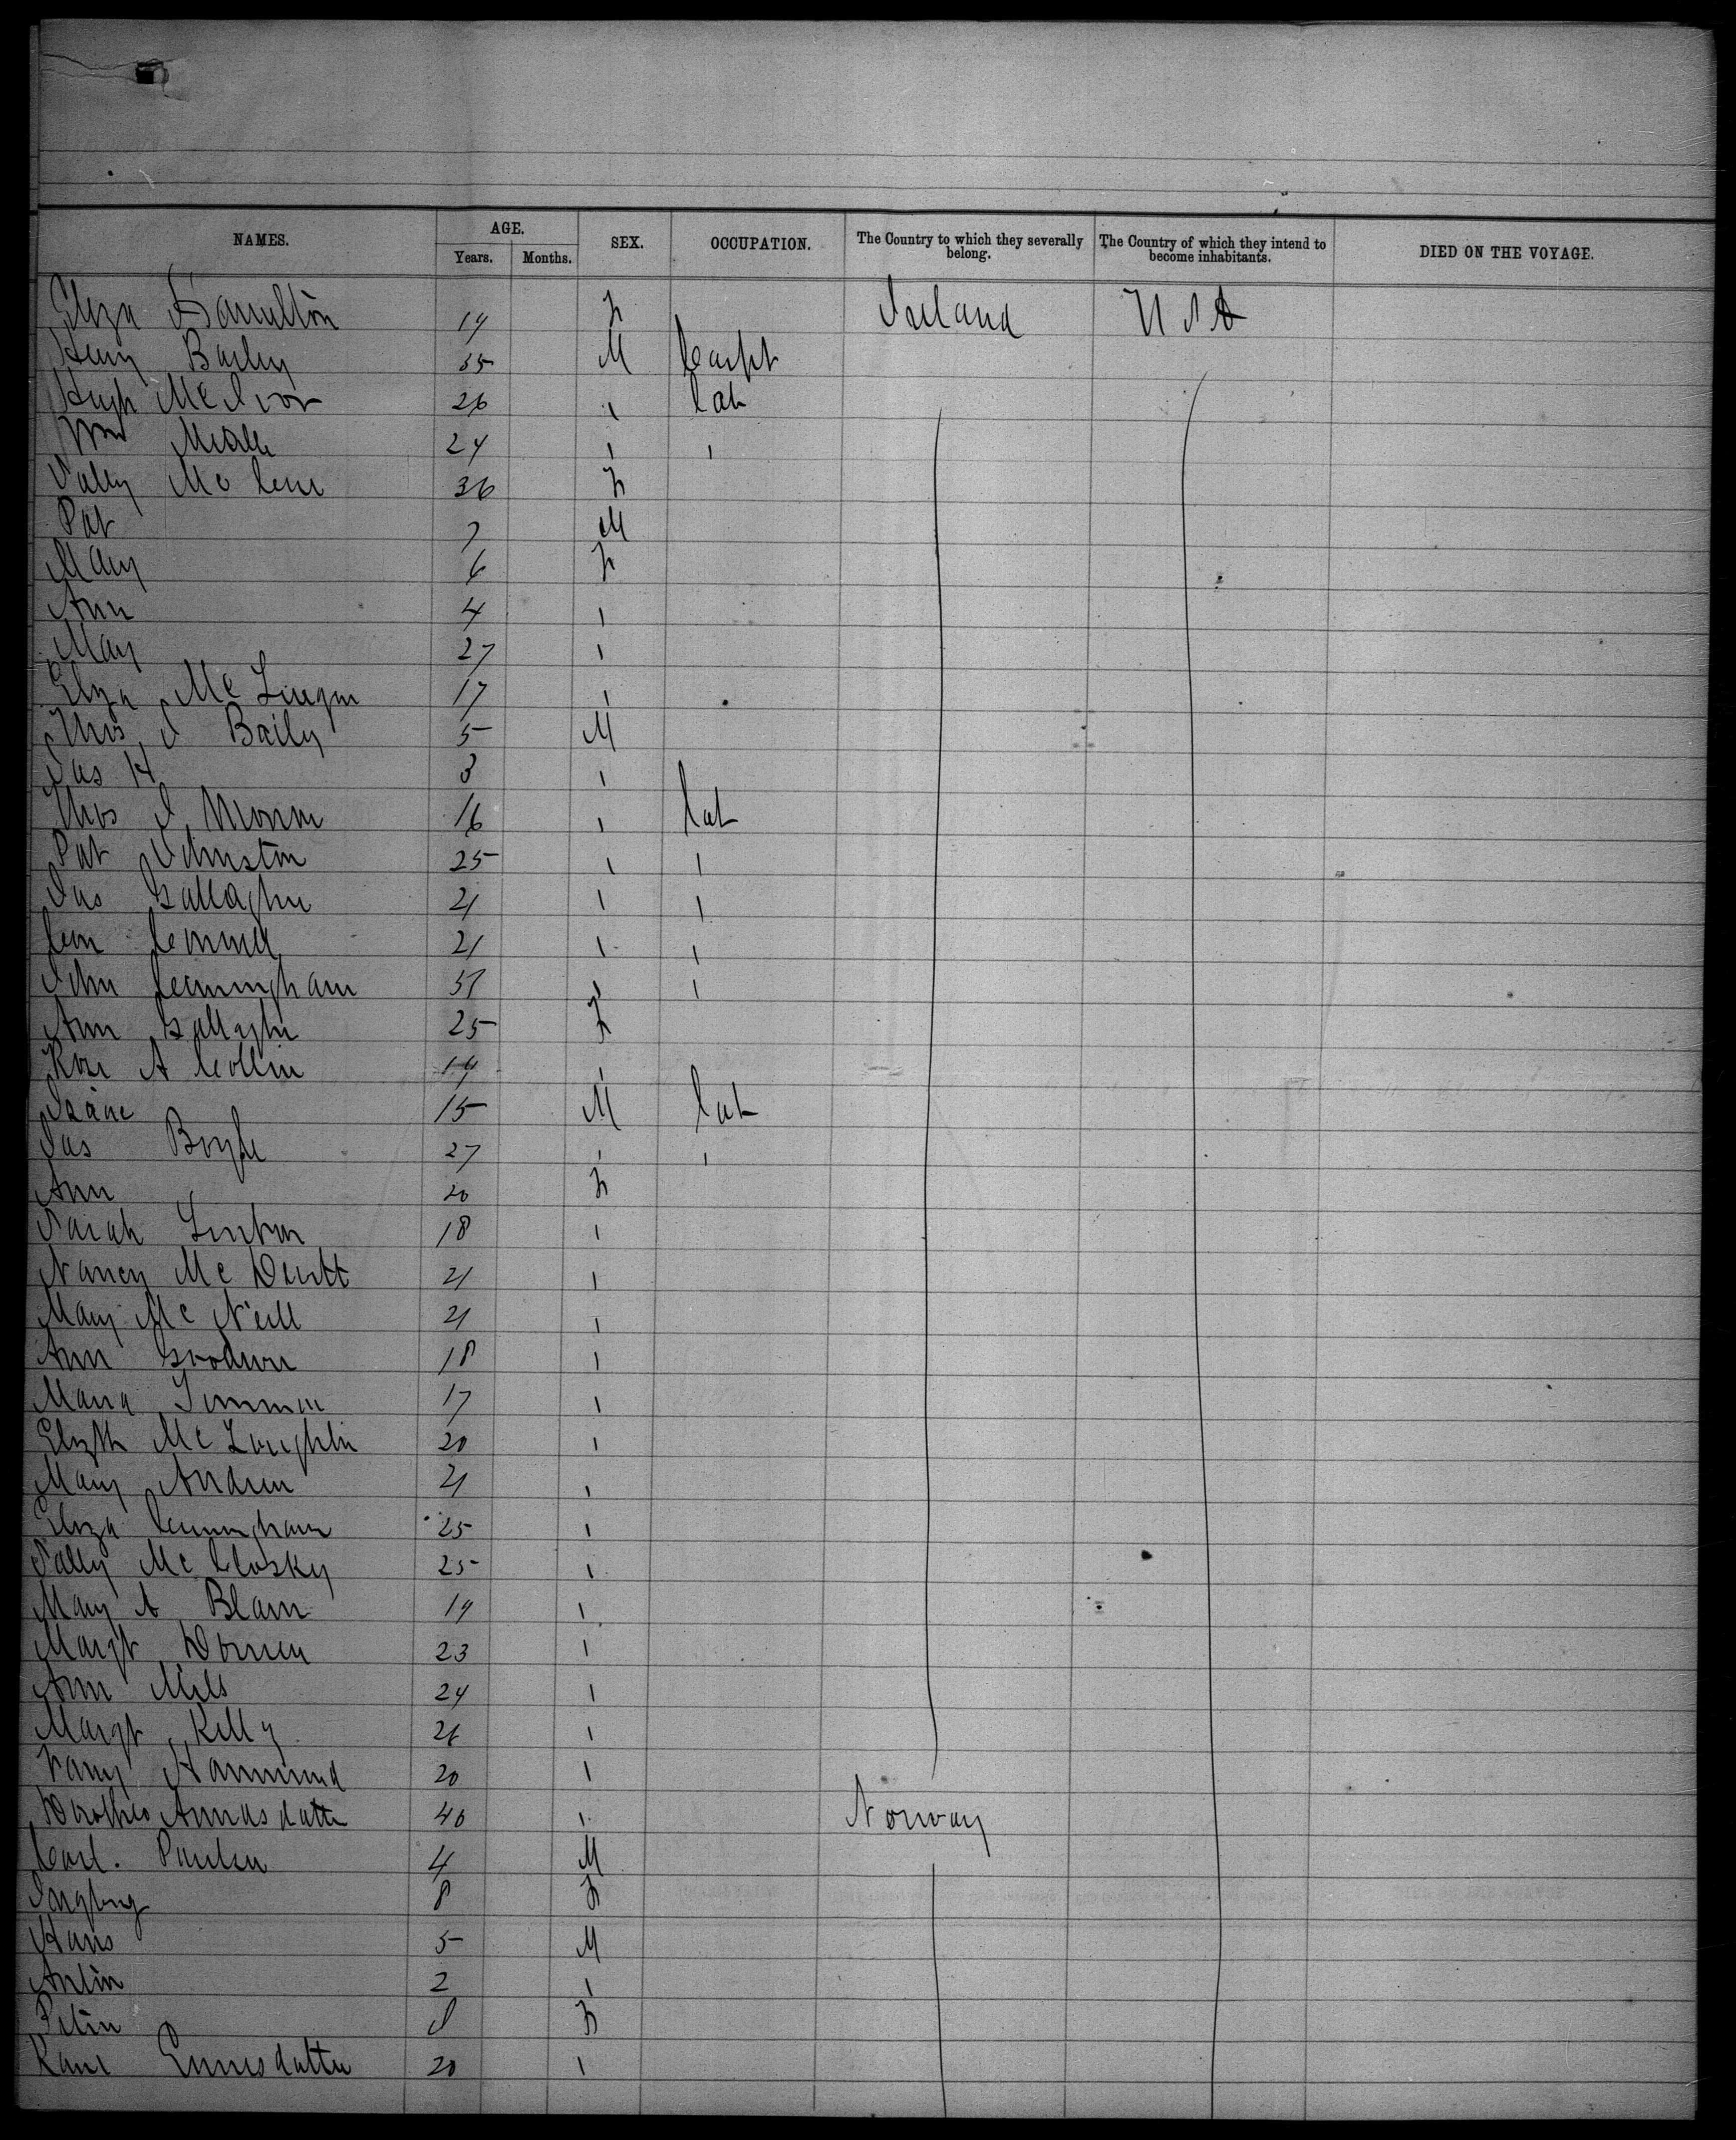 NAMES. AGE. SEX. OCCUPATION. The Country to which they severally belong. The Country of which they intend to become inhabitants. DIED ON THE VOYAGE.
Years. Months.
Eliza Hamilton 19 F Ireland USA
Henry Bailey 35 M Carpt
Hugh McIvor 26 " lab
Wm 24 " "
Sally Mc 36 F
Pat 7 M
Mary 6 F
Ann 4 "
Mary 27 "
Eliza Mc 17 "
Thos J Baily 5 M
Jas H 3 "
Thos J 16 " lab
Pat Johnston 25 " "
Jas Gallagher 21 " "
Con Connell 21 " "
John Cunningham 31 " "
Ann Gallagher 25 F
Rose A Collin 19 "
Isaac 15 M lab
Jas Boyle 27 " "
Ann 20 F
Sarah 18 "
Nancy Mc Devitt 21 "
Mary Mc Neill 21 "
Ann Goodwin 18 "
Maria 17 "
Elizth Mc Loughlin 20 "
Mary Andrew 21 "
Eliza Cunningham 25 "
Sally Mc Closky 25 "
Mary A Blair 19 "
Margt 23 "
Ann Mills 24 "
Margt Kelly 26 "
Fanny Hammond 20 "
40 " Norway
Carl. Paulsen 4 M
Ingbrg 8 F
Hans 5 M
Anton 2 "
F
20 "